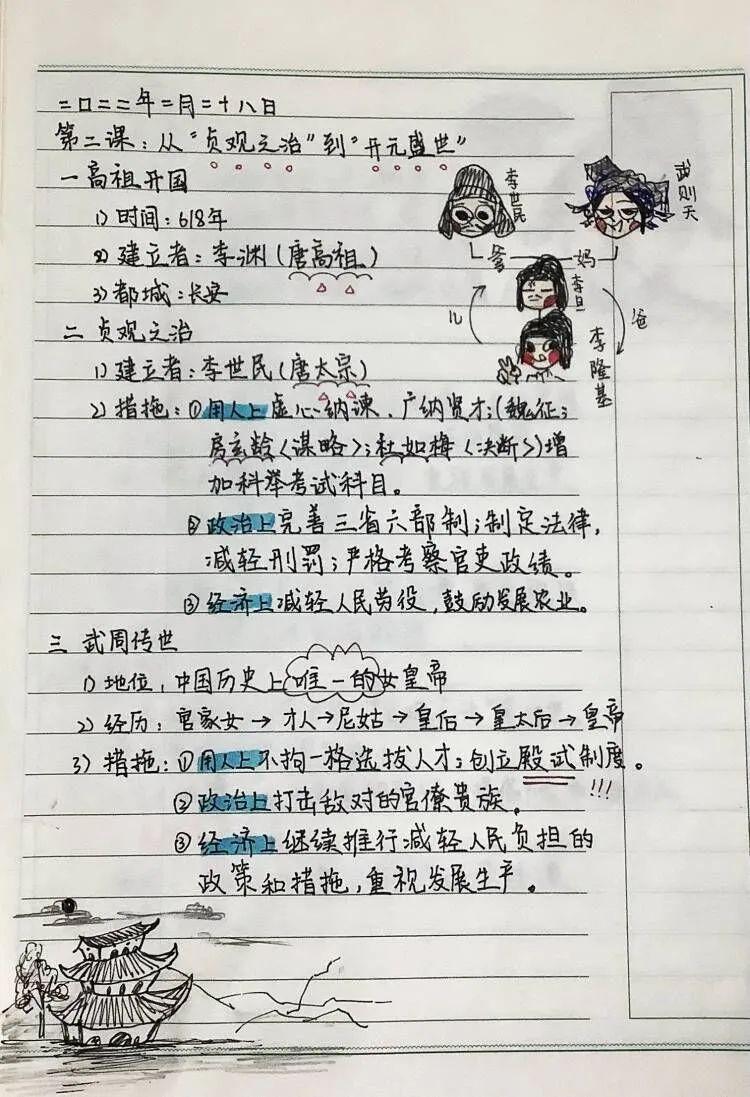 二〇二二年二月二十八日
第二课：从“贞观之治”到“开元盛世”
一 高祖开国
1) 时间：618年
2) 建立者：李渊(唐高祖)
3) 都城：长安
二 贞观之治
1) 建立者：李世民(唐太宗)
2) 措拖：①用人上虚心纳谏、广纳贤才；(魏征；
房玄龄〈谋略〉；杜如梅〈决断〉)增
加科举考试科目。
②政治上完善三省六部制；制定法律，
减轻刑罚；严格考察官吏政绩。
③经济上减轻人民劳役，鼓励发展农业。
三 武周传世
1) 地位，中国历史上唯一的女皇帝
2) 经历：官家女→才人→尼姑→皇后→皇太后→皇帝
3) 措拖：①用人上不拘一格选拔人才；创立殿试制度。
!!!
②政治上打击敌对的官僚贵族。
③经济上继续推行减轻人民负担的
政策和措拖，重视发展生产。
李世民
武则天
爹 妈
李旦
儿
爸
李隆基